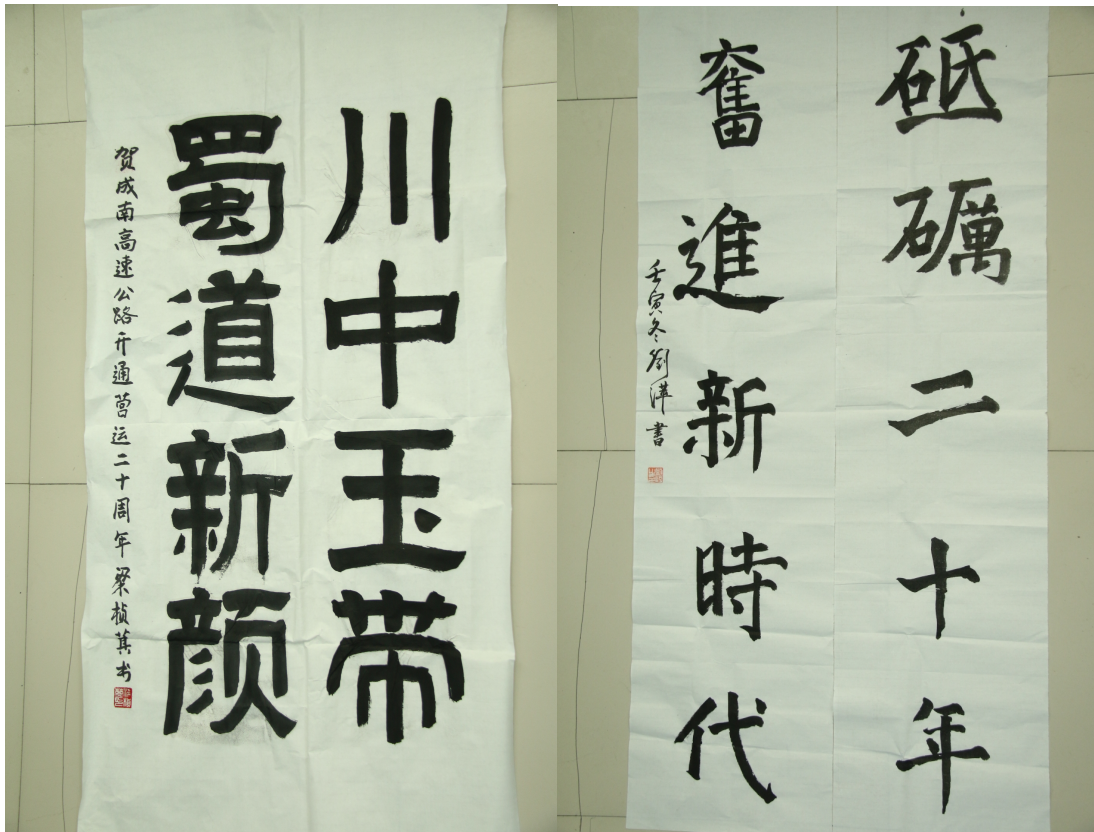 川中玉带
蜀道新颜
贺成南高速公路开通营运二十周年 梁桢其书
砥礪二十年
奮進新時代
壬寅冬劉萍書